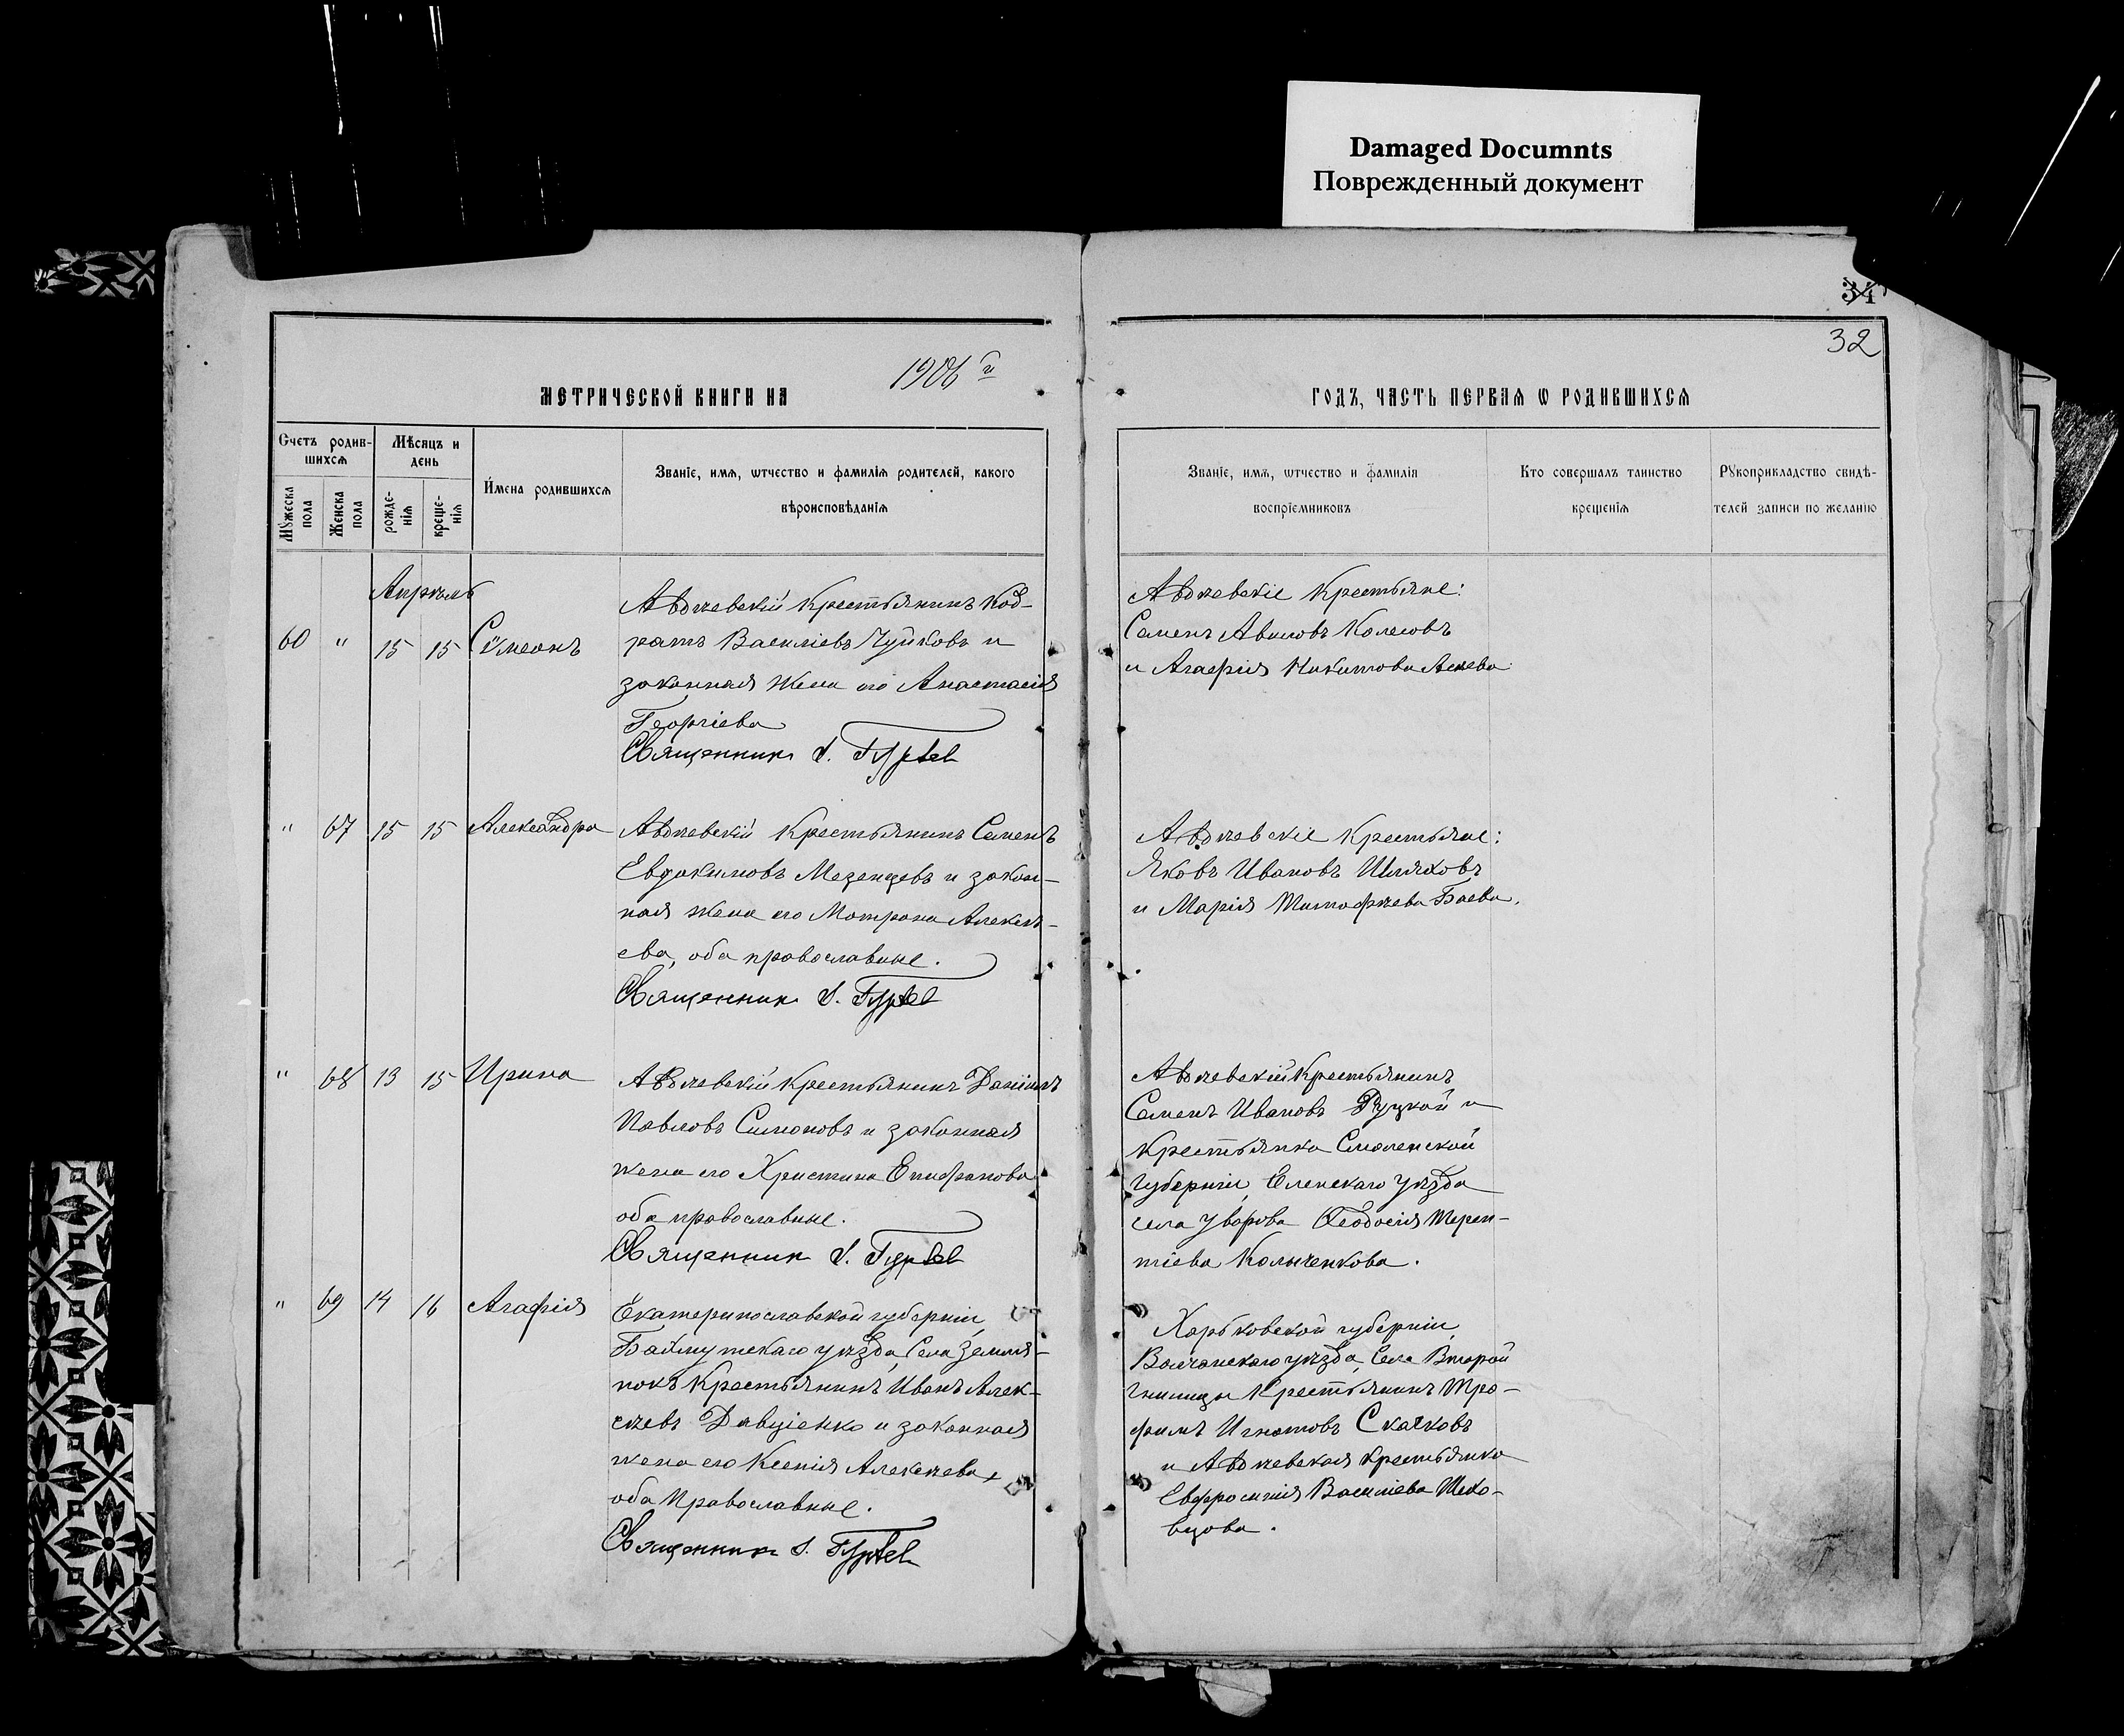 Damaged Documnts
Поврежденный документ
34
32
1906 й
МЕТРИЧЕСКОЙ КНИГИ НА
ГОДЪ, ЧАСТЬ ПЕРВАЯ Ѡ РОДИВШИХСЯ
Счетъ родив-
шихся
Мѣсяцъ и
день
Мꙋжеска пола
Женска пола
рожде-
нія
креще-
нія
Имена родившихся
Званіе, имя, ѿчество и фамилія родителей, какого
вѣроисповѣданія
Званіе, имя, ѿчество и фамилія
воспріемниковъ
Кто совершалъ таинство
крещенія
Рꙋкоприкладство свидѣ-
телей записи по желанію
Апрѣль
60 " 15 15 Сѵмеонъ
Авдѣевскій Крестьянинъ Код-
ратъ Василіевъ Чуйковъ и
законная жена его Анастасія
Георгіева
Священникъ
Авдѣевскіе Крестьяне:
Семенъ Авиловъ Колесовъ
и Агафія Никитова
" 67 15 15 Александра
Авдѣевскій Крестьянинъ Семенъ
Евдокимовъ Мезенцевъ и закон-
ная жена его Матрона Алексѣ-
ева, оба православные.
Священникъ
Авдѣевскіе Крестьяне:
Яковъ Ивановъ Шляховъ
и Марія Тимофѣева Баева.
" 68 13 15 Ирина
Авдѣевскій Крестьянинъ Даніилъ
Павловъ Симоновъ и законная
жена его Христина Епифанова
оба православные.
Священникъ
Авдѣевскій Крестьянинъ
Семенъ Ивановъ Руцкой и
Крестьянка Смоленской
губерніи, Еленскаго уѣзда
села Уварова Ѳеодосія Терен-
тіева Колыченкова.
" 69 14 16 Агафія
Екатеринославской губерніи,
Бахмутскаго уѣзда, Села Земля-
нокъ Крестьянинъ Иванъ Алек-
сѣевъ Давиденко и законная
жена его Ксенія Алексѣева,
оба Православные.
Священникъ
Харьковской губерніи,
Волчанскаго уѣзда, Села Второй
Гнилицы Крестьянинъ Тро-
фимъ Игнатовъ Скачковъ
и Авдѣевская Крестьянка
Евфросинія Василіева Шехо-
вцова.